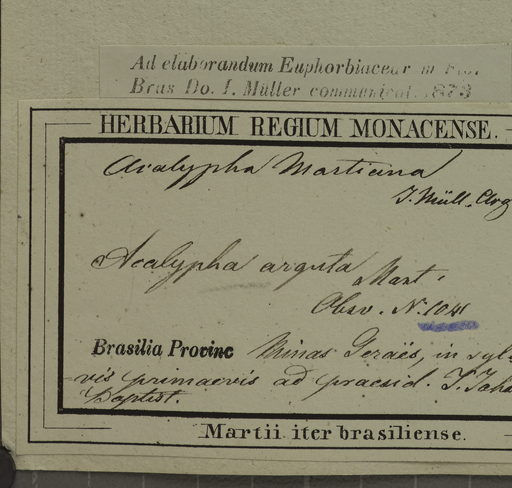 Ad elaborandum Euphorbiacear in
Bras Do. I. Müller communicat. 1873
HERBARIUM REGIUM MONACENSE.
Acalypha Martiana
J. Müll. Arg
Acalypha arguta Mart.
Obsv. N. 1041
Brasilia Provinc Minas Geraës, in syl-
vis primaevis ad praesid. S. Joha
Baptist.
Martii iter brasiliense.